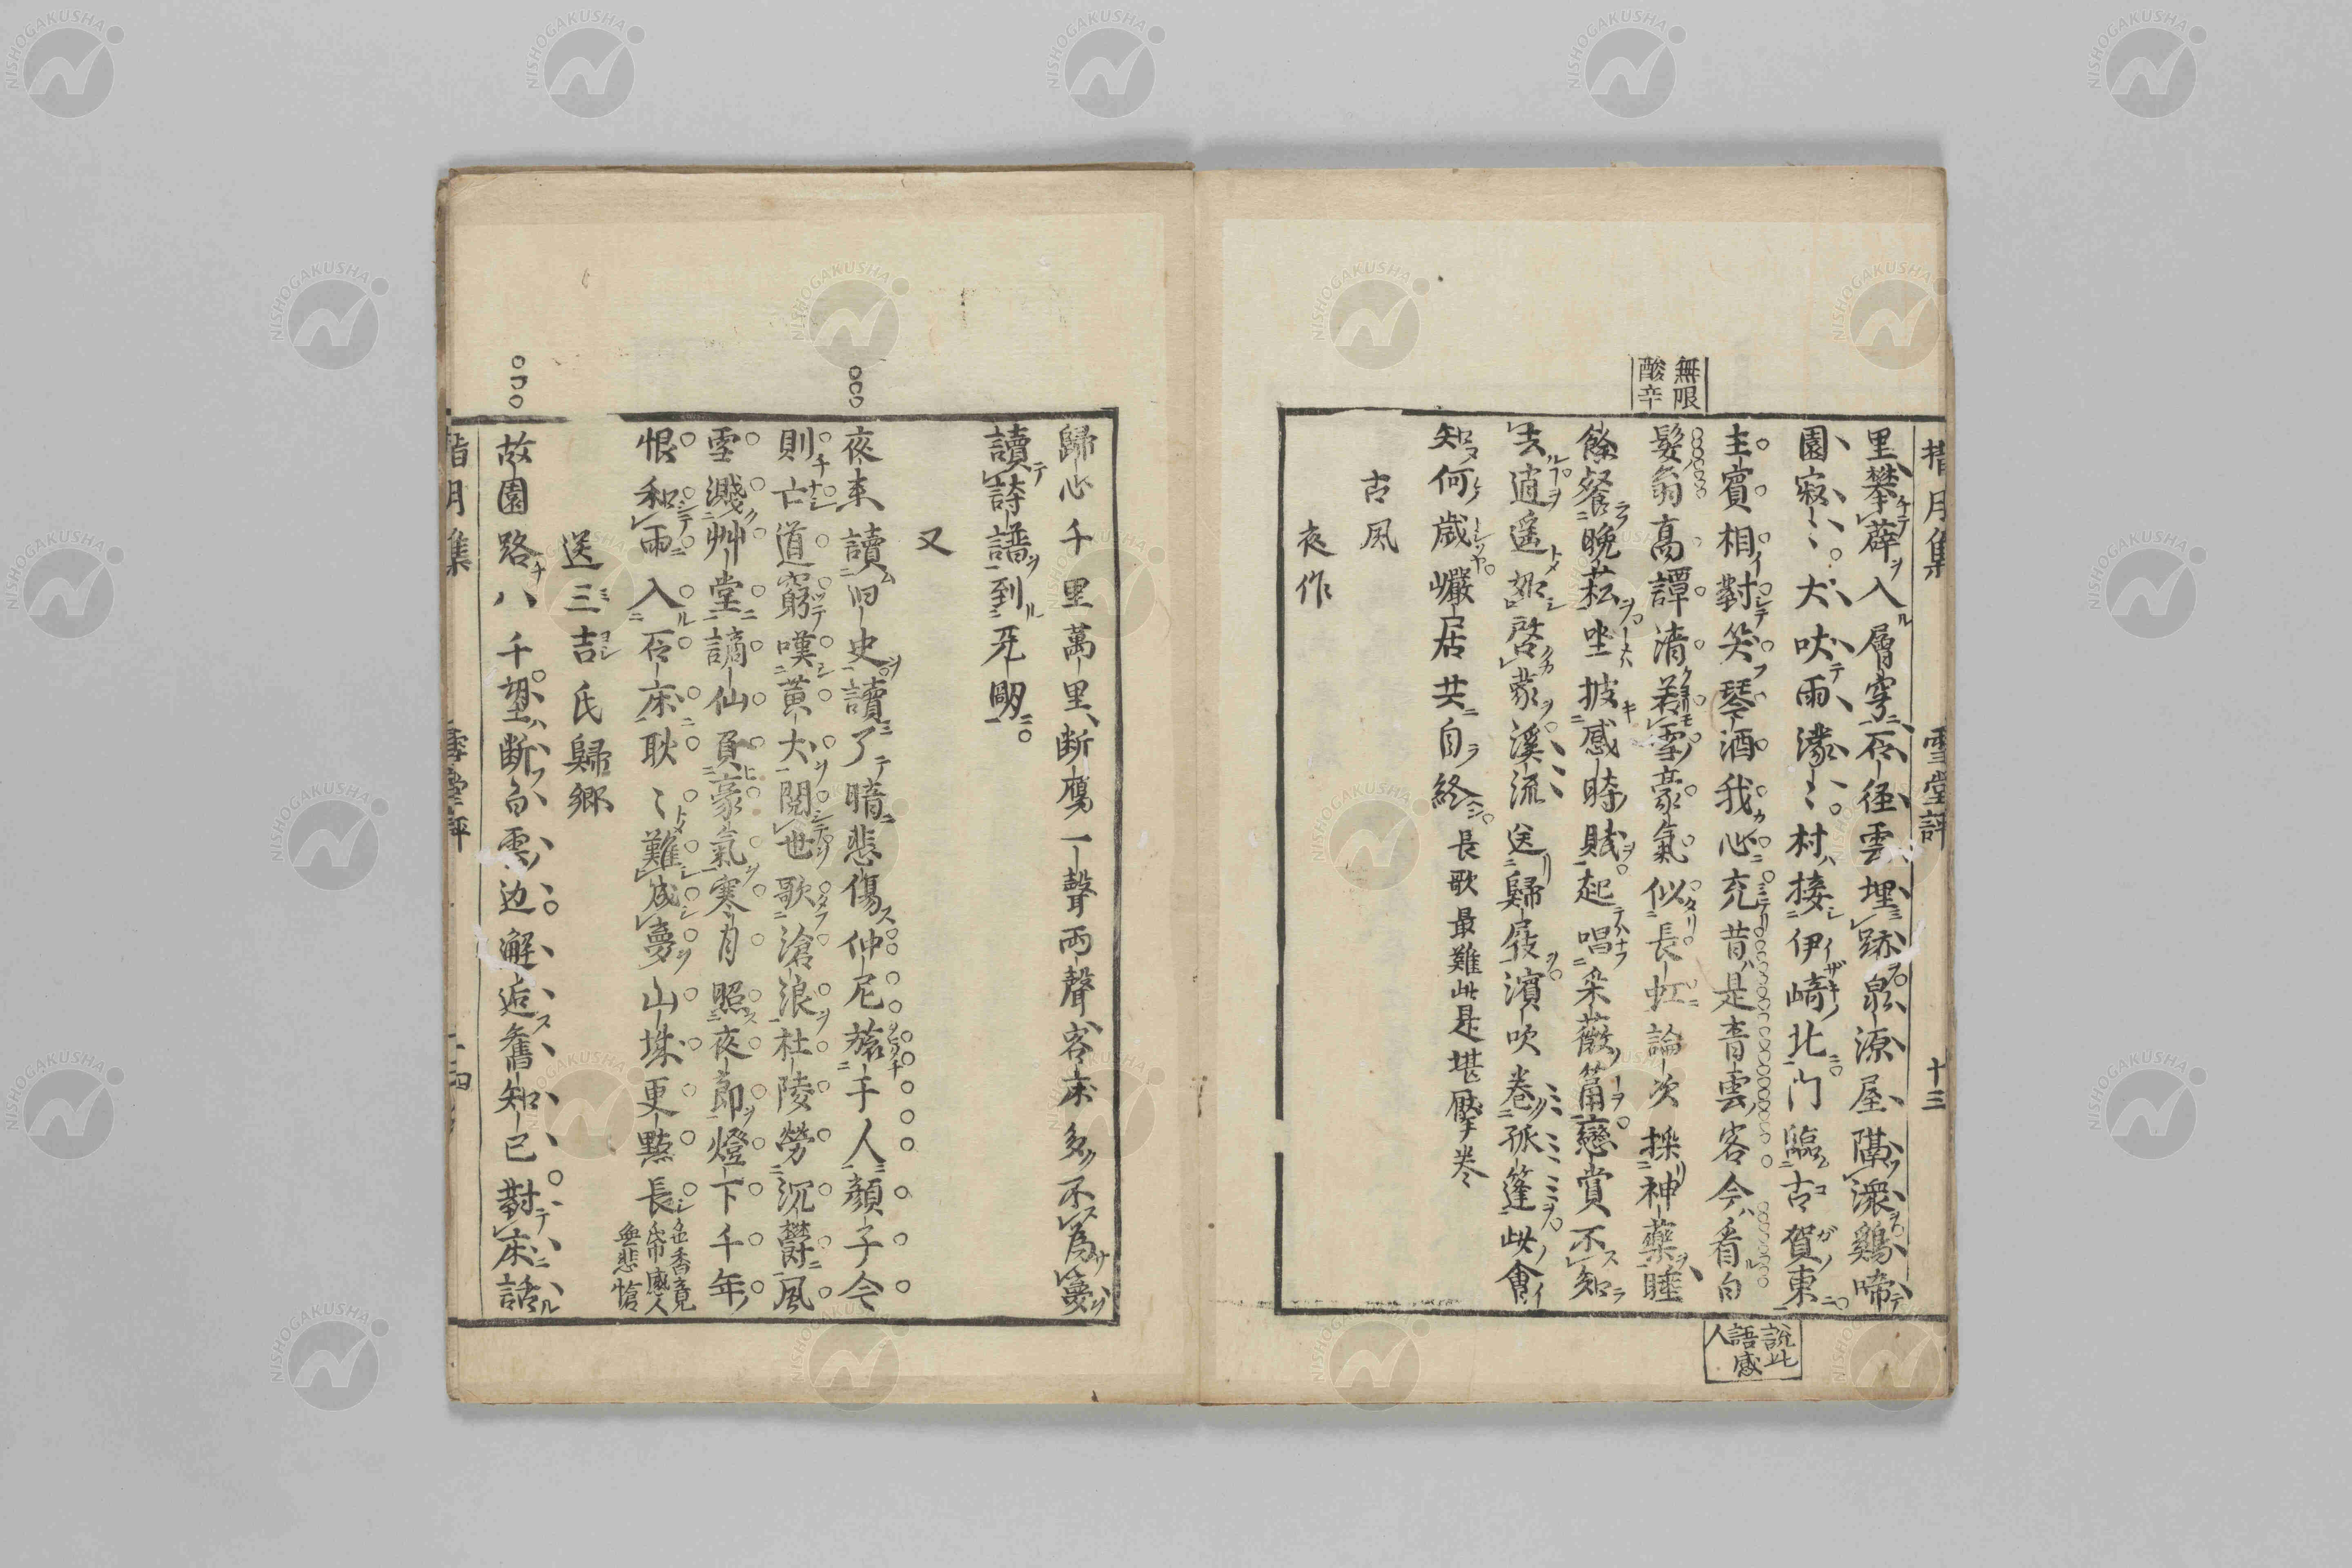 指月集　雪堂評　十三
無限
酸辛
里攀薜入層穹石径雲埋跡泉源屋隔濴鷄啼
園寂〻犬吠雨濛〻村接伊﨑北門臨古賀東
主賓相對笑琴酒我心充昔是青雲客今看白
髮翁高譚清若雪豪氣似長虹論次採神藥睡
餘餐晩菘坐披感時賦起唱采薇篇戀賞不知
去逍遥
啓蒙溪流送歸屐濱吹巻孤篷此會
知何歳巖居共自終　長歌最難此是堪壓巻
古風
夜作
說此
語感
人
歸心千里萬里断鴈一聲兩聲客床多不為夢
讀詩譜到死朙
又
夜来讀旧史讀了暗悲傷仲尼
手人顔子今
則亡道窮嘆黄犬閲也歌滄浪杜陵勞沉欝風
雪濺艸堂謫仙負豪氣寒月照夜郎燈下千年
恨和雨入石床耿〻難成夢山堞更點長
色香竟
帋感人
無悲愴
送三吉氏歸郷
故園路八千望断白雲边邂逅舊知已對床話
指月集　雪堂評　十四